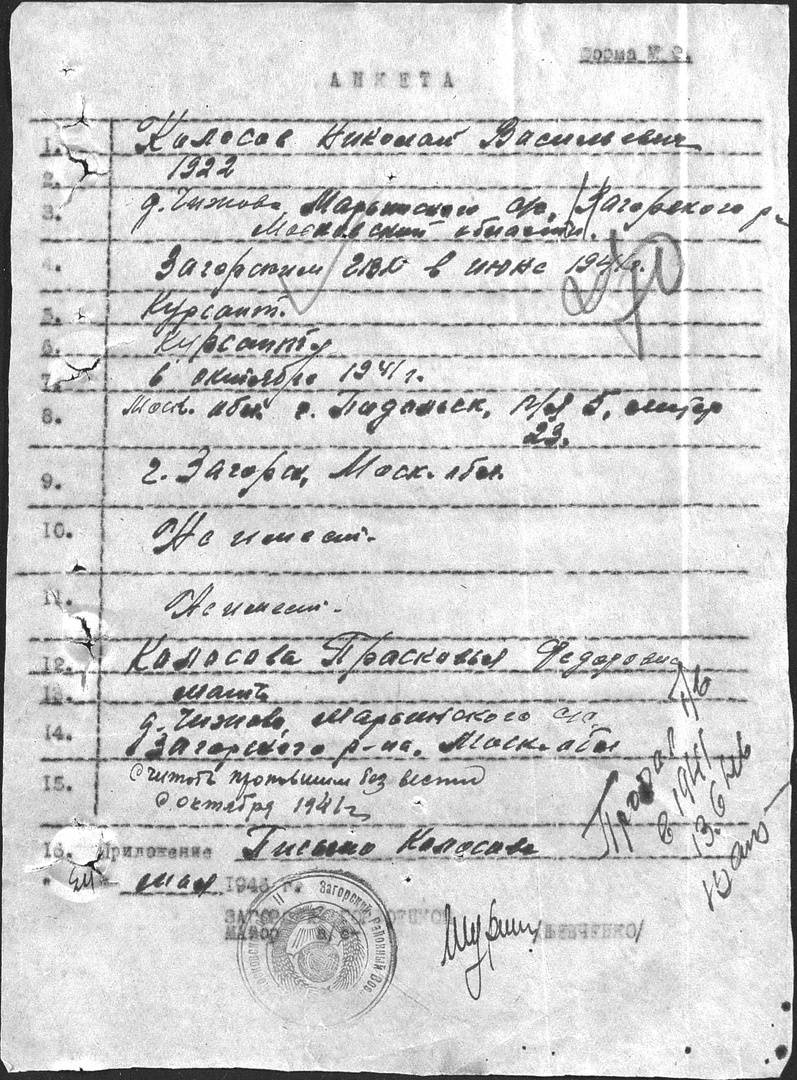 Форма № 2.
АНКЕТА
1. Колосов Николай Васильевич
2. 1922
3. д. Чижово Марьинского с/с, Загорского р-
Московской области.
4. Загорским ГВК в июне 1941 г.
5. Курсант.
6. Курсант
7. в октябре 1941 г.
8. Моск. обл. г. Подольск, п/я 5, литер
23.
9. г. Загорск, Моск. обл.
10. Не имеет.
11. Не имеет.
12. Колосова Прасковья Федоровна
13. мать
14. д. Чижово, Марьинского с/с,
Загорского р-на, Моск. обл
15. Считать пропавшим без вести
с октября 1941 г.
16. Приложение Письмо Колосова
мая 1946 г.
Загорский Районный Вое
МАЙОР а/с
/ШЕВЧЕНКО/
Пропал б/в
в 1941
13.6.46